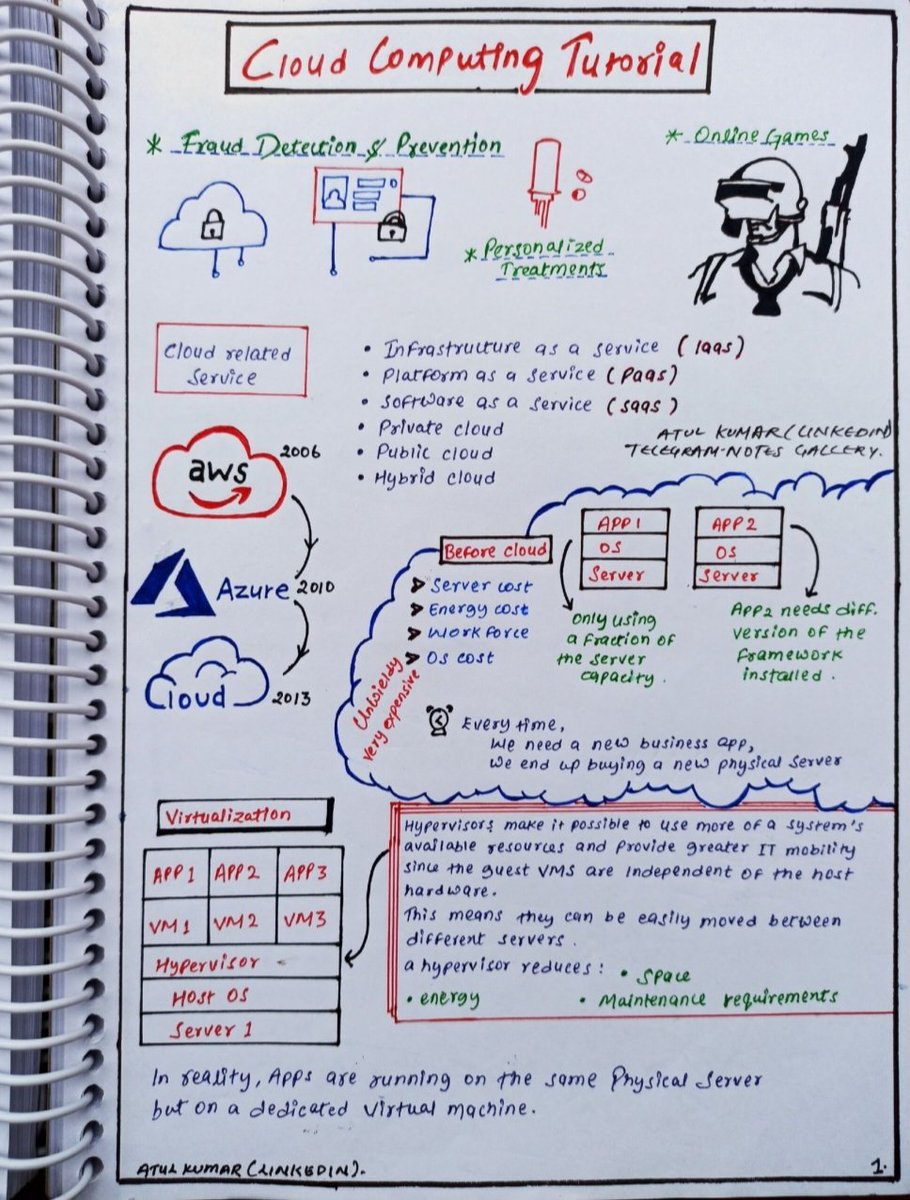 Cloud Computing Tutorial
* Fraud Detection & Prevention
* Online Games
* Personalized
Treatments
Cloud related
Service
• Infrastructure as a service (Iaas)
• Platform as a service (Paas)
• Software as a service (saas)
• Private cloud
• Public cloud
• Hybrid cloud
ATUL KUMAR (LINKEDIN)
TELEGRAM-NOTES GALLERY.
aws
2006
Azure 2010
Cloud 2013
Before cloud
➤ Server cost
➤ Energy cost
➤ Workforce
➤ OS cost
Unwieldy
very expensive
APP 1
OS
Server
APP 2
OS
Server
only using
a fraction of
the server
capacity.
APP2 needs diff.
version of the
framework
installed.
Every time,
We need a new business app,
we end up buying a new physical server
Virtualization
APP 1 APP 2 APP 3
VM 1 VM 2 VM 3
Hypervisor
Host OS
Server 1
Hypervisors make it possible to use more of a system's
available resources and provide greater IT mobility
since the guest VMS are independent of the host
hardware.
This means they can be easily moved between
different servers.
a hypervisor reduces: • Space
• energy • Maintenance requirements
In reality, Apps are running on the same Physical Server
but on a dedicated virtual machine.
ATUL KUMAR (LINKEDIN).
1.